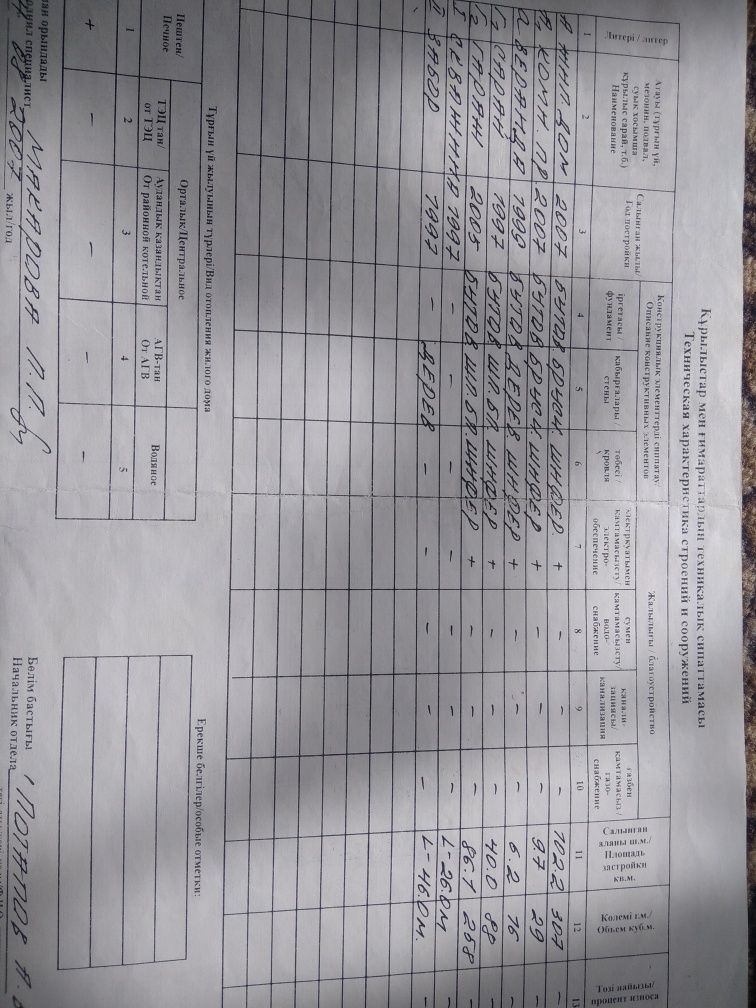 Құрылыстар мен ғимараттардың техникалық сипаттамасы
Техническая характеристика строений и сооружений
Литері / литер
Атауы (тұрғын үй, мезонин, подвал, суық қосымша құрылыс сарай, т.б.) Наименование
Салынған жылы/ Год постройки
Конструкциялық элементтерді сипаттау/ Описание конструктивных элементов
іргетасы фундамент
қабырғалары стены
төбесі / кровля
Жалпылығы / благоустройство
электрқуатымен қамтамасызсту/ электро-обеспечение
сумен қамтамасызсту/ водо-снабжение
канали-тациясы/ канализация
газбен қамтамасыз / газо-снабжение
Салынған аланы ш.м./ Площадь застройки кв.м.
Көлемі т.м./ Объем куб.м.
Тозі найызы/ процент износа
1 2 3 4 5 6 7 8 9 10 11 12 13
А жил. дом 2007 бутов. бр уч. шифер. + - - - 102.2 307 -
2007 бутов. шифер + - - - 9.7 29 -
а веранда 1999 бутов дерев шифер + - - - 6.2 16 -
гараж 1997 бутов шл.бл. шифер + - - - 40.0 88 -
Г2 гараж 2005 бутов шл.бл. шифер + - - - 86.1 258 -
скважина 1997 - - - - - - - L-26.0м -
забор 1997 - дерев - - - - - L-46.0м. -
Тұрғын үй жылуының түрлері/Вид отопления жилого дома
Пештен/ Печное
Орталық/Центральное
ТЭЦ тан/ от ТЭЦ
Аудандық қазандықтан От районной котельной
АГВ-тан От АГВ
Водяное
1 2 3 4 5
+ - - - -
Ерекше белгілер/особые отметки:
орындады
специалист Макарова П.П.
2007 жыл/год
Бөлім бастығы
Начальник отдела Потапов А.